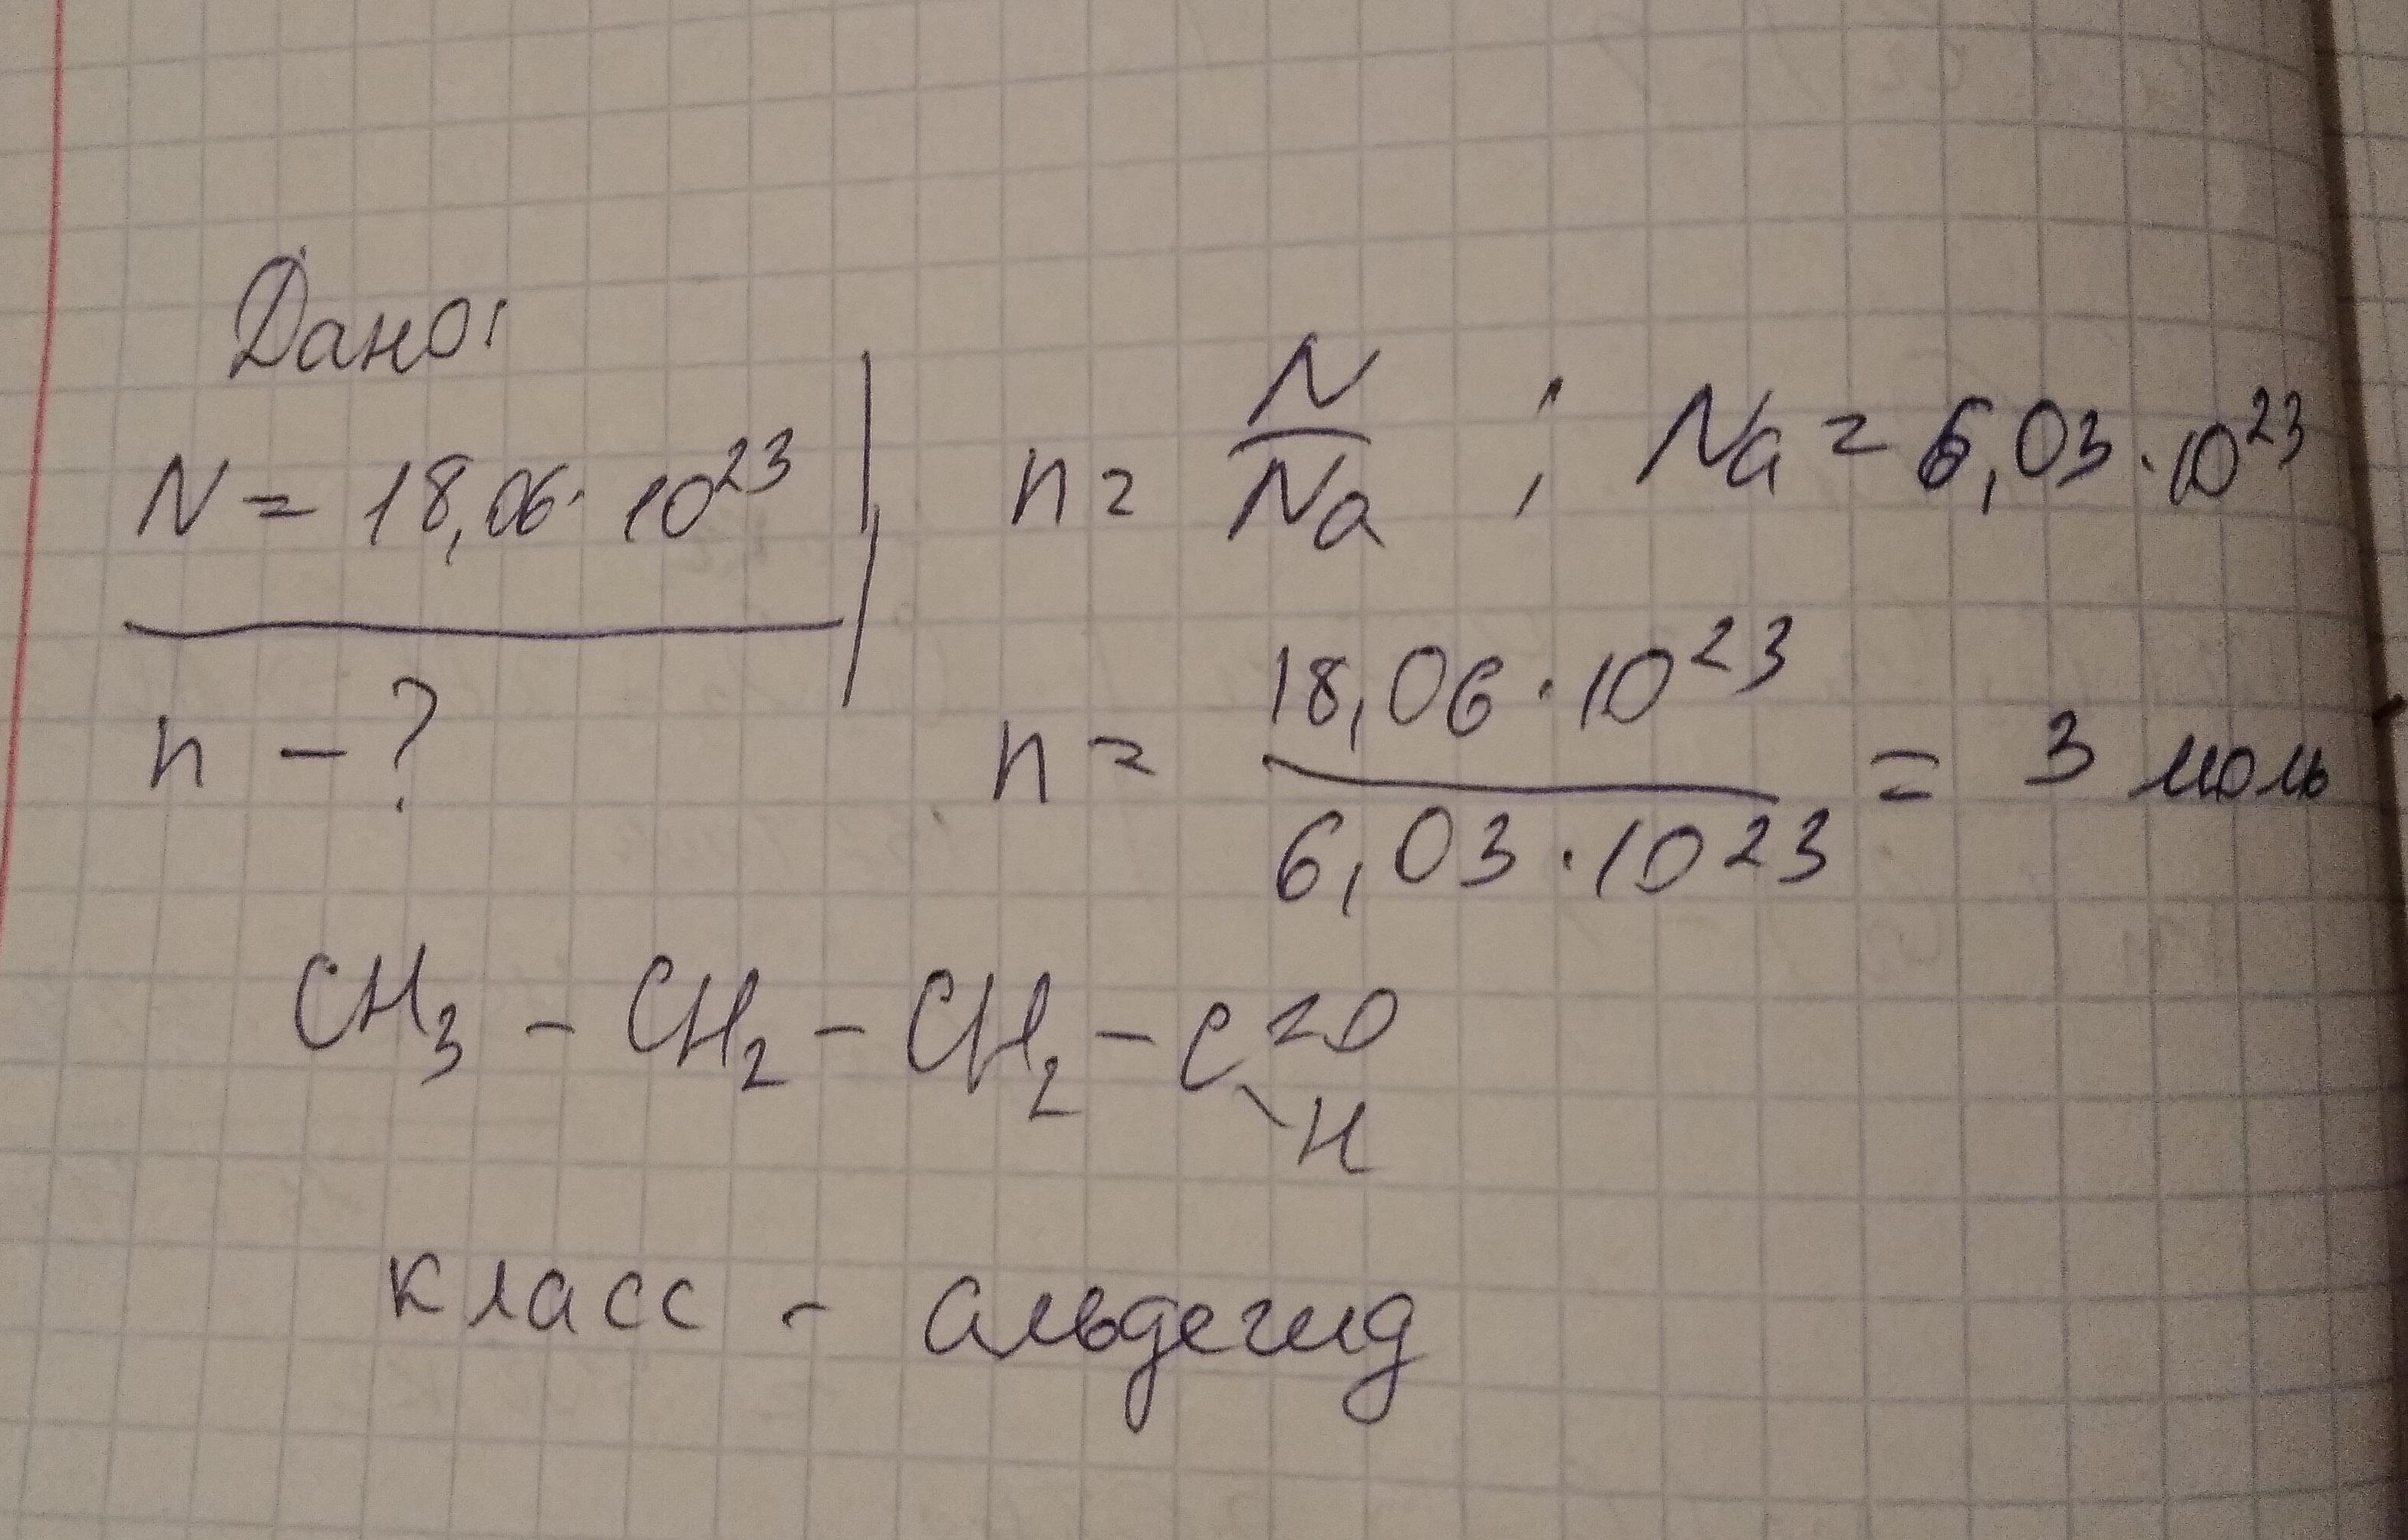 Дано:
N = 18,06 · 10²³
n - ?
n = N / Na ; Na = 6,03 · 10²³
n = 18,06 · 10²³ / 6,03 · 10²³ = 3 моль
CH₃ - CH₂ - CH₂ - C = O
\ H
класс - альдегид